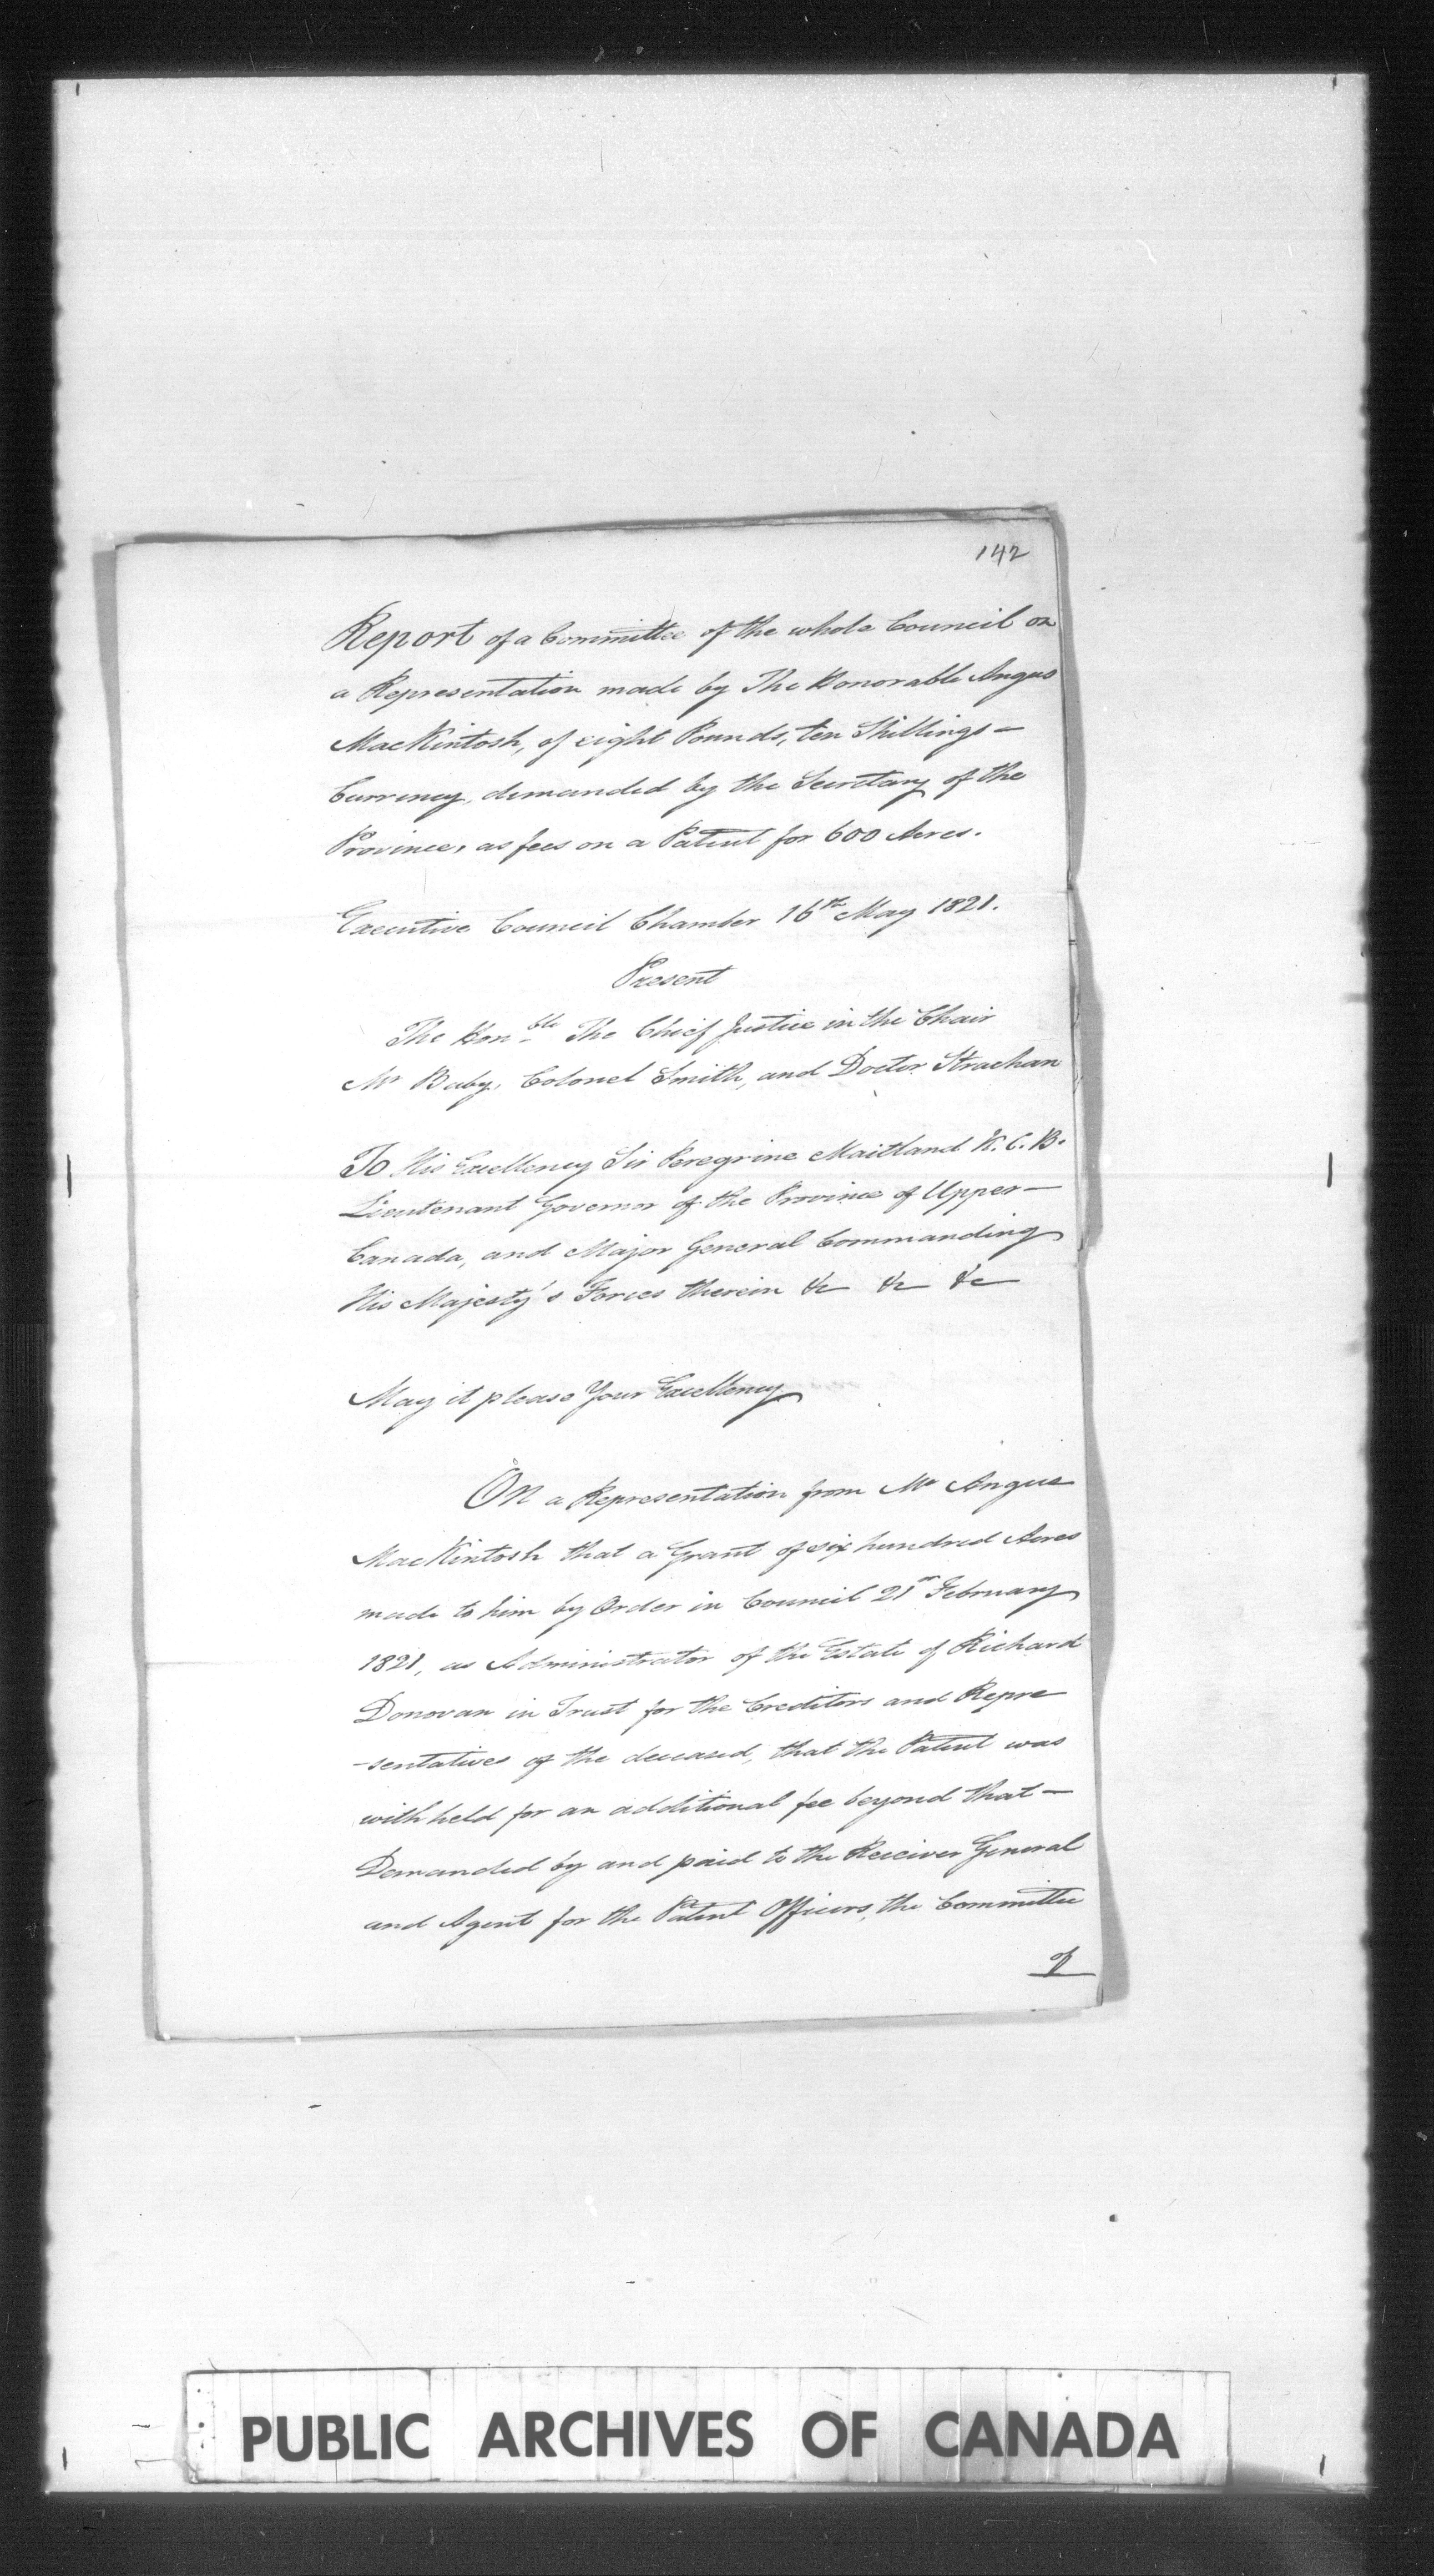 142
Report of a Committee of the whole Council on
a Representation made by The Honorable Angus
MacKintosh, of eight Pounds, ten Shillings —
Currency, demanded by the Secretary of the
Province, as fees on a Patent for 600 Acres.
Executive Council Chamber 16th May 1821.
Present
The Honble The Chief Justice in the Chair
Mr Baby, Colonel Smith, and Doctor Strachan
To His Excellency Sir Peregrine Maitland K.C.B.
Lieutenant Governor of the Province of Upper —
Canada, and Major General Commanding
His Majesty's Forces therein &c &c &c
May it please Your Excellency
On a Representation from Mr Angus
MacKintosh that a Grant of six hundred Acres
made to him by Order in Council 21st February
1821, as Administrator of the Estate of Richard
Donovan in Trust for the Creditors and Repre
-sentatives of the deceased, that the Patent was
with held for an additional fee beyond that —
Demanded by and paid to the Receiver General
and Agent for the Patent Officers, the Committee
of
PUBLIC ARCHIVES OF CANADA